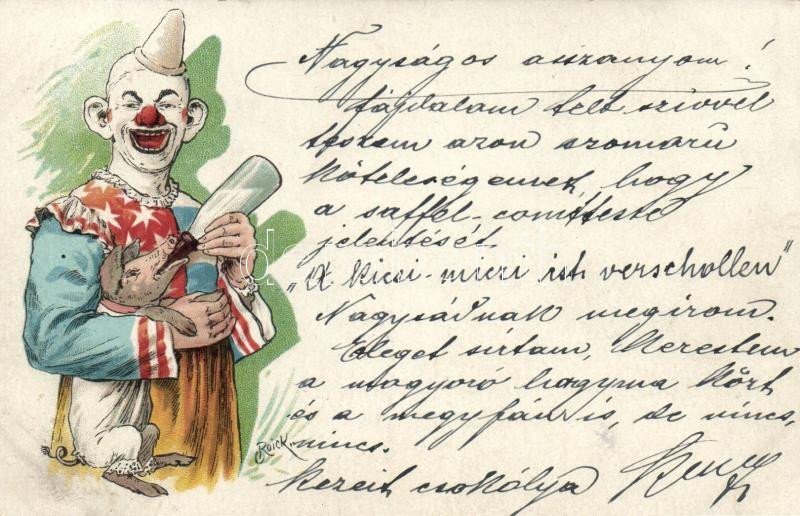 Nagyságos asszonyom!
fájdalam telt szivvel
teszem azon szomorú
kötelességemet, hogy
a saffel-comitteste
jelentését
"A kicsi-miczi ist verschollen"
Nagysádnak megirom.
Eleget sirtam, kerestem
a mogyoró hagyma kört
és a megyfán is, de nincs,
nincs.
kezeit csokólja
Roick